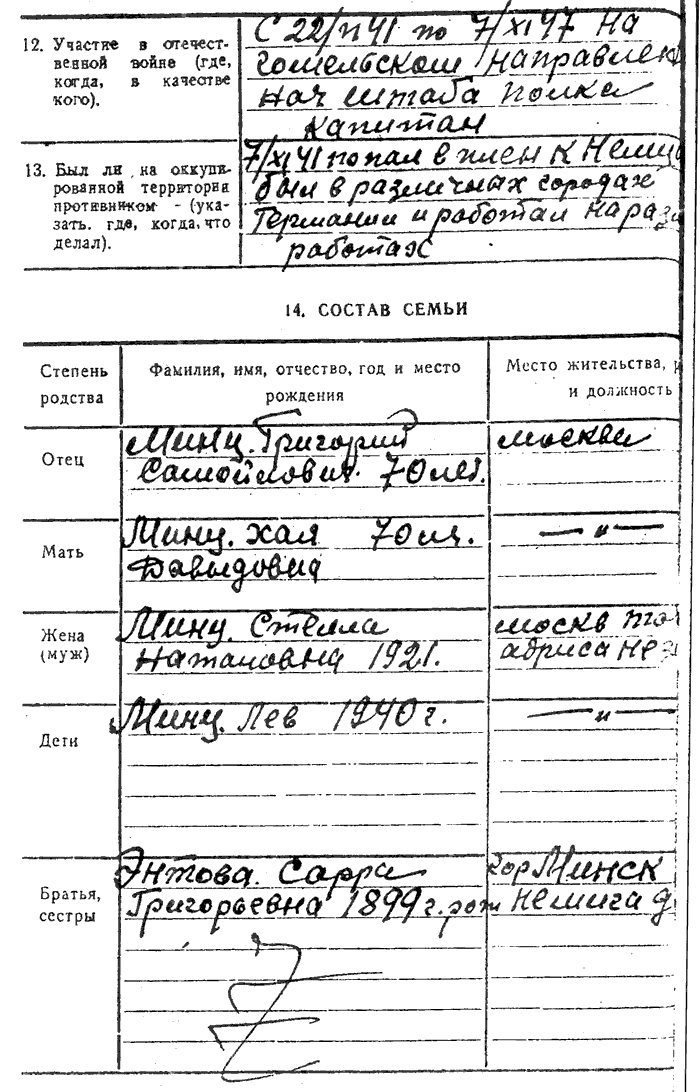 12. Участие в отечест-
венной войне (где,
когда, в качестве
кого).
С 22/VI 41 по 7/XI 47 на
гомельском направлен
нач штаба полка
капитан
13. Был ли на оккупи-
рованной территории
противником - (ука-
зать. где, когда, что
делал).
7/XI 41 попал в плен к немц
был в различных городах
Германии и работал на раз
работах
14. СОСТАВ СЕМЬИ
Степень
родства
Фамилия, имя, отчество, год и место
рождения
Место жительства, р
и должность
Отец
Минц. Григорий
Самойлович. 70 лет.
Москва
Мать
Минц. Хая 70 л.
Давыдовна
— " —
Жена
(муж)
Минц. Стелла
Натановна 1921.
Москв
адриса не з
Дети
Минц. Лев 1940 г.
— " —
Братья,
сестры
Энтова. Сарра
Григорьевна 1899 г. рож
гор Минск
Немига д